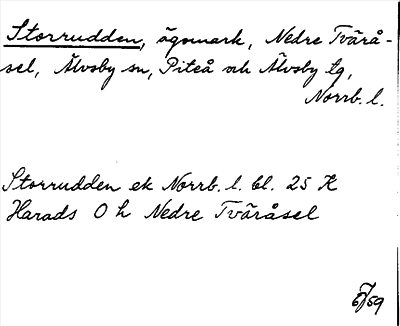 Storrudden, ägomark, Nedre Tvärå-
sel, Älvsby sn, Piteå och Älvsby tg,
Norrb. l.
Storrudden ek Norrb. l. bl. 25 K
Harads O h Nedre Tväråsel